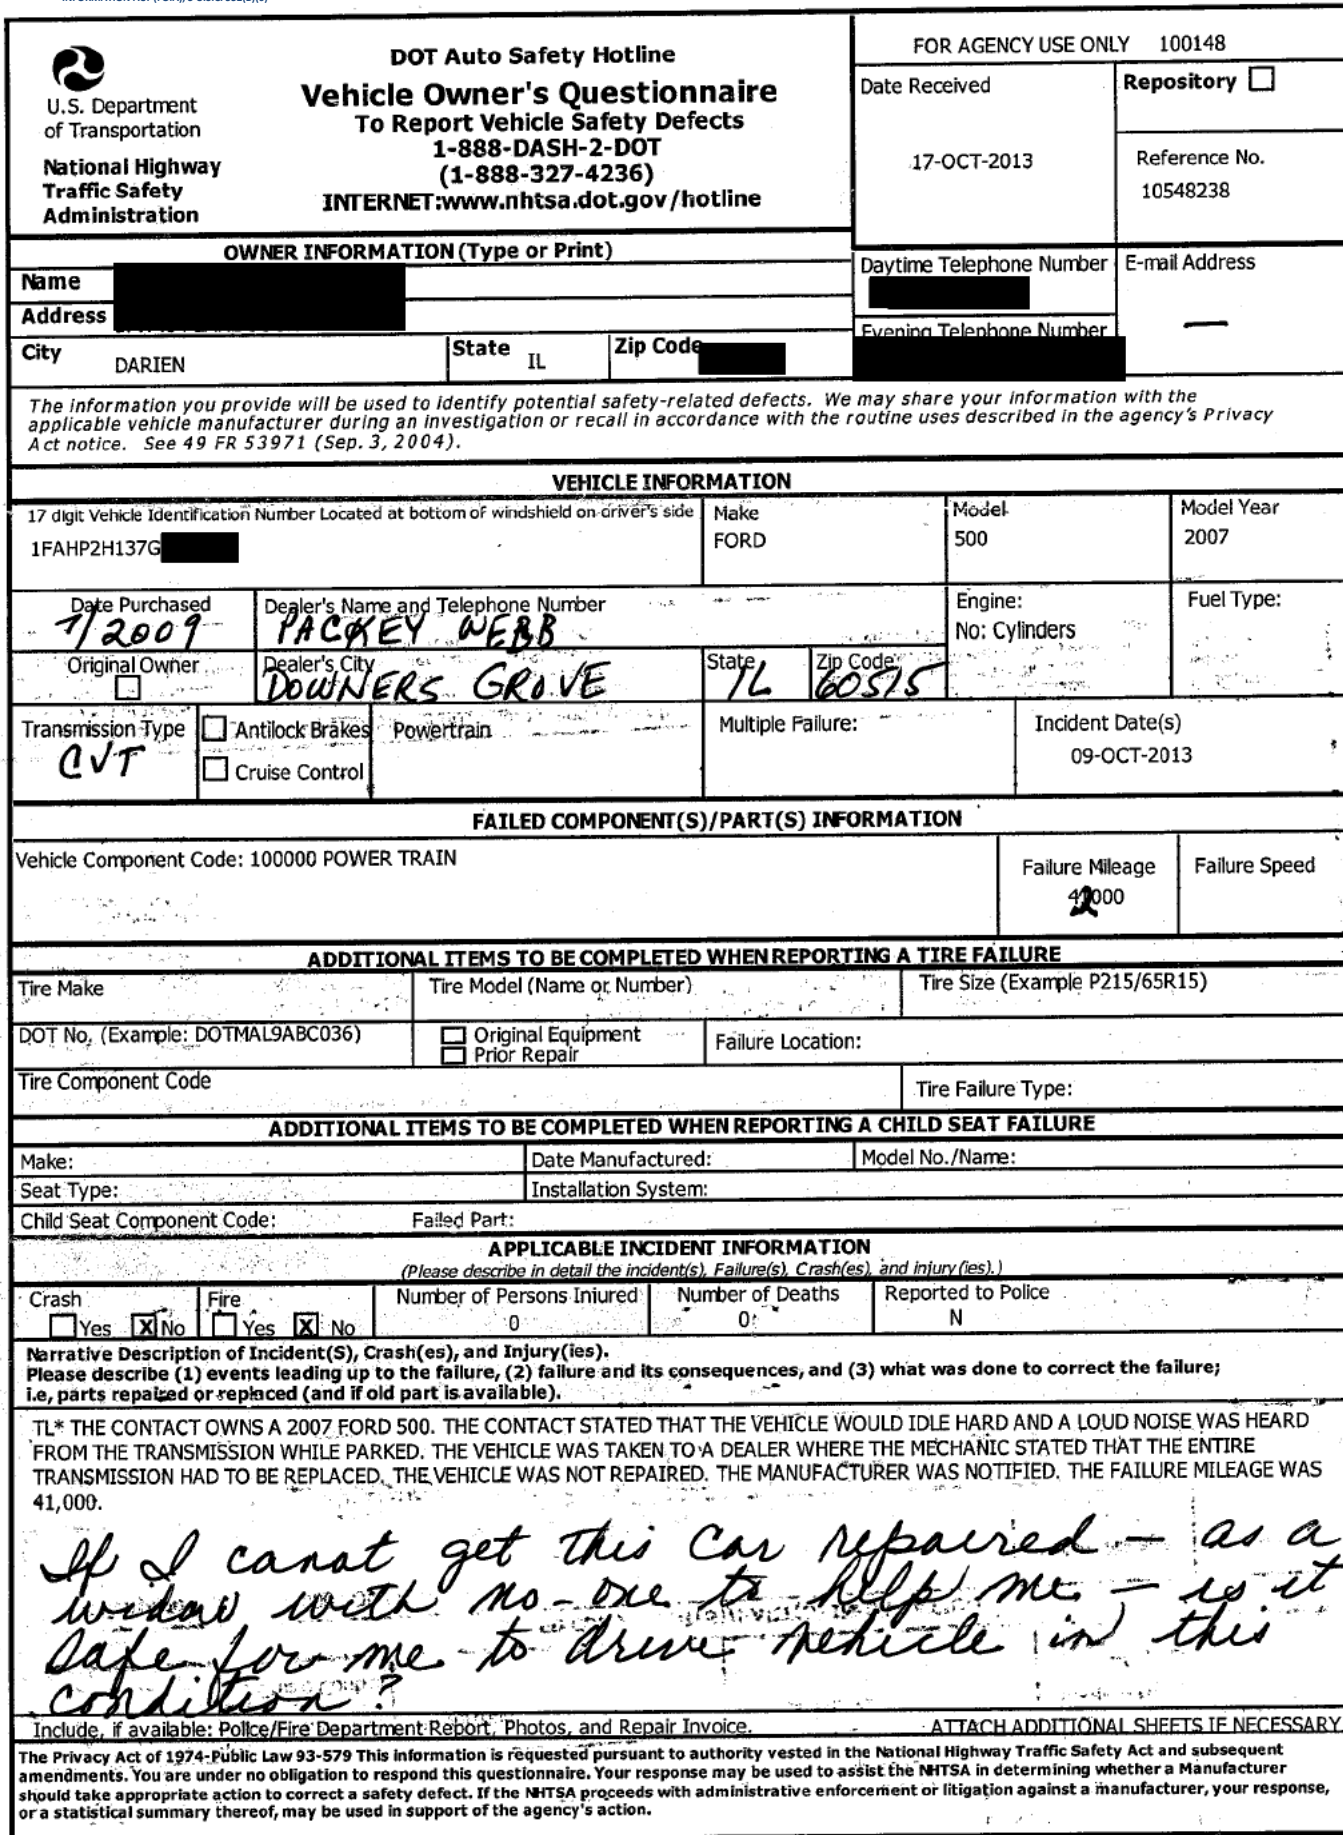 DOT Auto Safety Hotline
Vehicle Owner's Questionnaire
To Report Vehicle Safety Defects
1-888-DASH-2-DOT
(1-888-327-4236)
INTERNET:www.nhtsa.dot.gov/hotline
U.S. Department
of Transportation
National Highway
Traffic Safety
Administration
FOR AGENCY USE ONLY 100148
Date Received
17-OCT-2013
Repository
Reference No.
10548238
OWNER INFORMATION (Type or Print)
Name
Address
City DARIEN State IL Zip Code
Daytime Telephone Number
Evening Telephone Number
E-mail Address
—
The information you provide will be used to identify potential safety-related defects. We may share your information with the
applicable vehicle manufacturer during an investigation or recall in accordance with the routine uses described in the agency's Privacy
Act notice. See 49 FR 53971 (Sep. 3, 2004).
VEHICLE INFORMATION
17 digit Vehicle Identification Number Located at bottom of windshield on driver's side
1FAHP2H137G
Make
FORD
Model
500
Model Year
2007
Date Purchased
7/2009
Dealer's Name and Telephone Number
PACKEY WEBB
Engine:
No: Cylinders
Fuel Type:
Original Owner
Dealer's City
DOWNERS GROVE
State
IL
Zip Code
60515
Transmission Type
CVT
Antilock Brakes
Cruise Control
Powertrain
Multiple Failure:
Incident Date(s)
09-OCT-2013
FAILED COMPONENT(S)/PART(S) INFORMATION
Vehicle Component Code: 100000 POWER TRAIN
Failure Mileage
42000
Failure Speed
ADDITIONAL ITEMS TO BE COMPLETED WHEN REPORTING A TIRE FAILURE
Tire Make
Tire Model (Name or Number)
Tire Size (Example P215/65R15)
DOT No. (Example: DOTMAL9ABC036)
Original Equipment
Prior Repair
Failure Location:
Tire Component Code
Tire Failure Type:
ADDITIONAL ITEMS TO BE COMPLETED WHEN REPORTING A CHILD SEAT FAILURE
Make: Date Manufactured: Model No./Name:
Seat Type: Installation System:
Child Seat Component Code: Failed Part:
APPLICABLE INCIDENT INFORMATION
(Please describe in detail the incident(s), Failure(s), Crash(es), and injury(ies).)
Crash
Yes X No
Fire
Yes X No
Number of Persons Injured
0
Number of Deaths
0
Reported to Police
N
Narrative Description of Incident(S), Crash(es), and Injury(ies).
Please describe (1) events leading up to the failure, (2) failure and its consequences, and (3) what was done to correct the failure;
i.e, parts repaired or replaced (and if old part is available).
TL* THE CONTACT OWNS A 2007 FORD 500. THE CONTACT STATED THAT THE VEHICLE WOULD IDLE HARD AND A LOUD NOISE WAS HEARD
FROM THE TRANSMISSION WHILE PARKED. THE VEHICLE WAS TAKEN TO A DEALER WHERE THE MECHANIC STATED THAT THE ENTIRE
TRANSMISSION HAD TO BE REPLACED. THE VEHICLE WAS NOT REPAIRED. THE MANUFACTURER WAS NOTIFIED. THE FAILURE MILEAGE WAS
41,000.
If I canot get this car repaired - as a
widow with no-one to help me - is it
safe for me to drive vehicle in this
condition?
Include, if available: Police/Fire Department Report, Photos, and Repair Invoice. ATTACH ADDITIONAL SHEETS IF NECESSARY
The Privacy Act of 1974-Public Law 93-579 This information is requested pursuant to authority vested in the National Highway Traffic Safety Act and subsequent
amendments. You are under no obligation to respond this questionnaire. Your response may be used to assist the NHTSA in determining whether a Manufacturer
should take appropriate action to correct a safety defect. If the NHTSA proceeds with administrative enforcement or litigation against a manufacturer, your response,
or a statistical summary thereof, may be used in support of the agency's action.